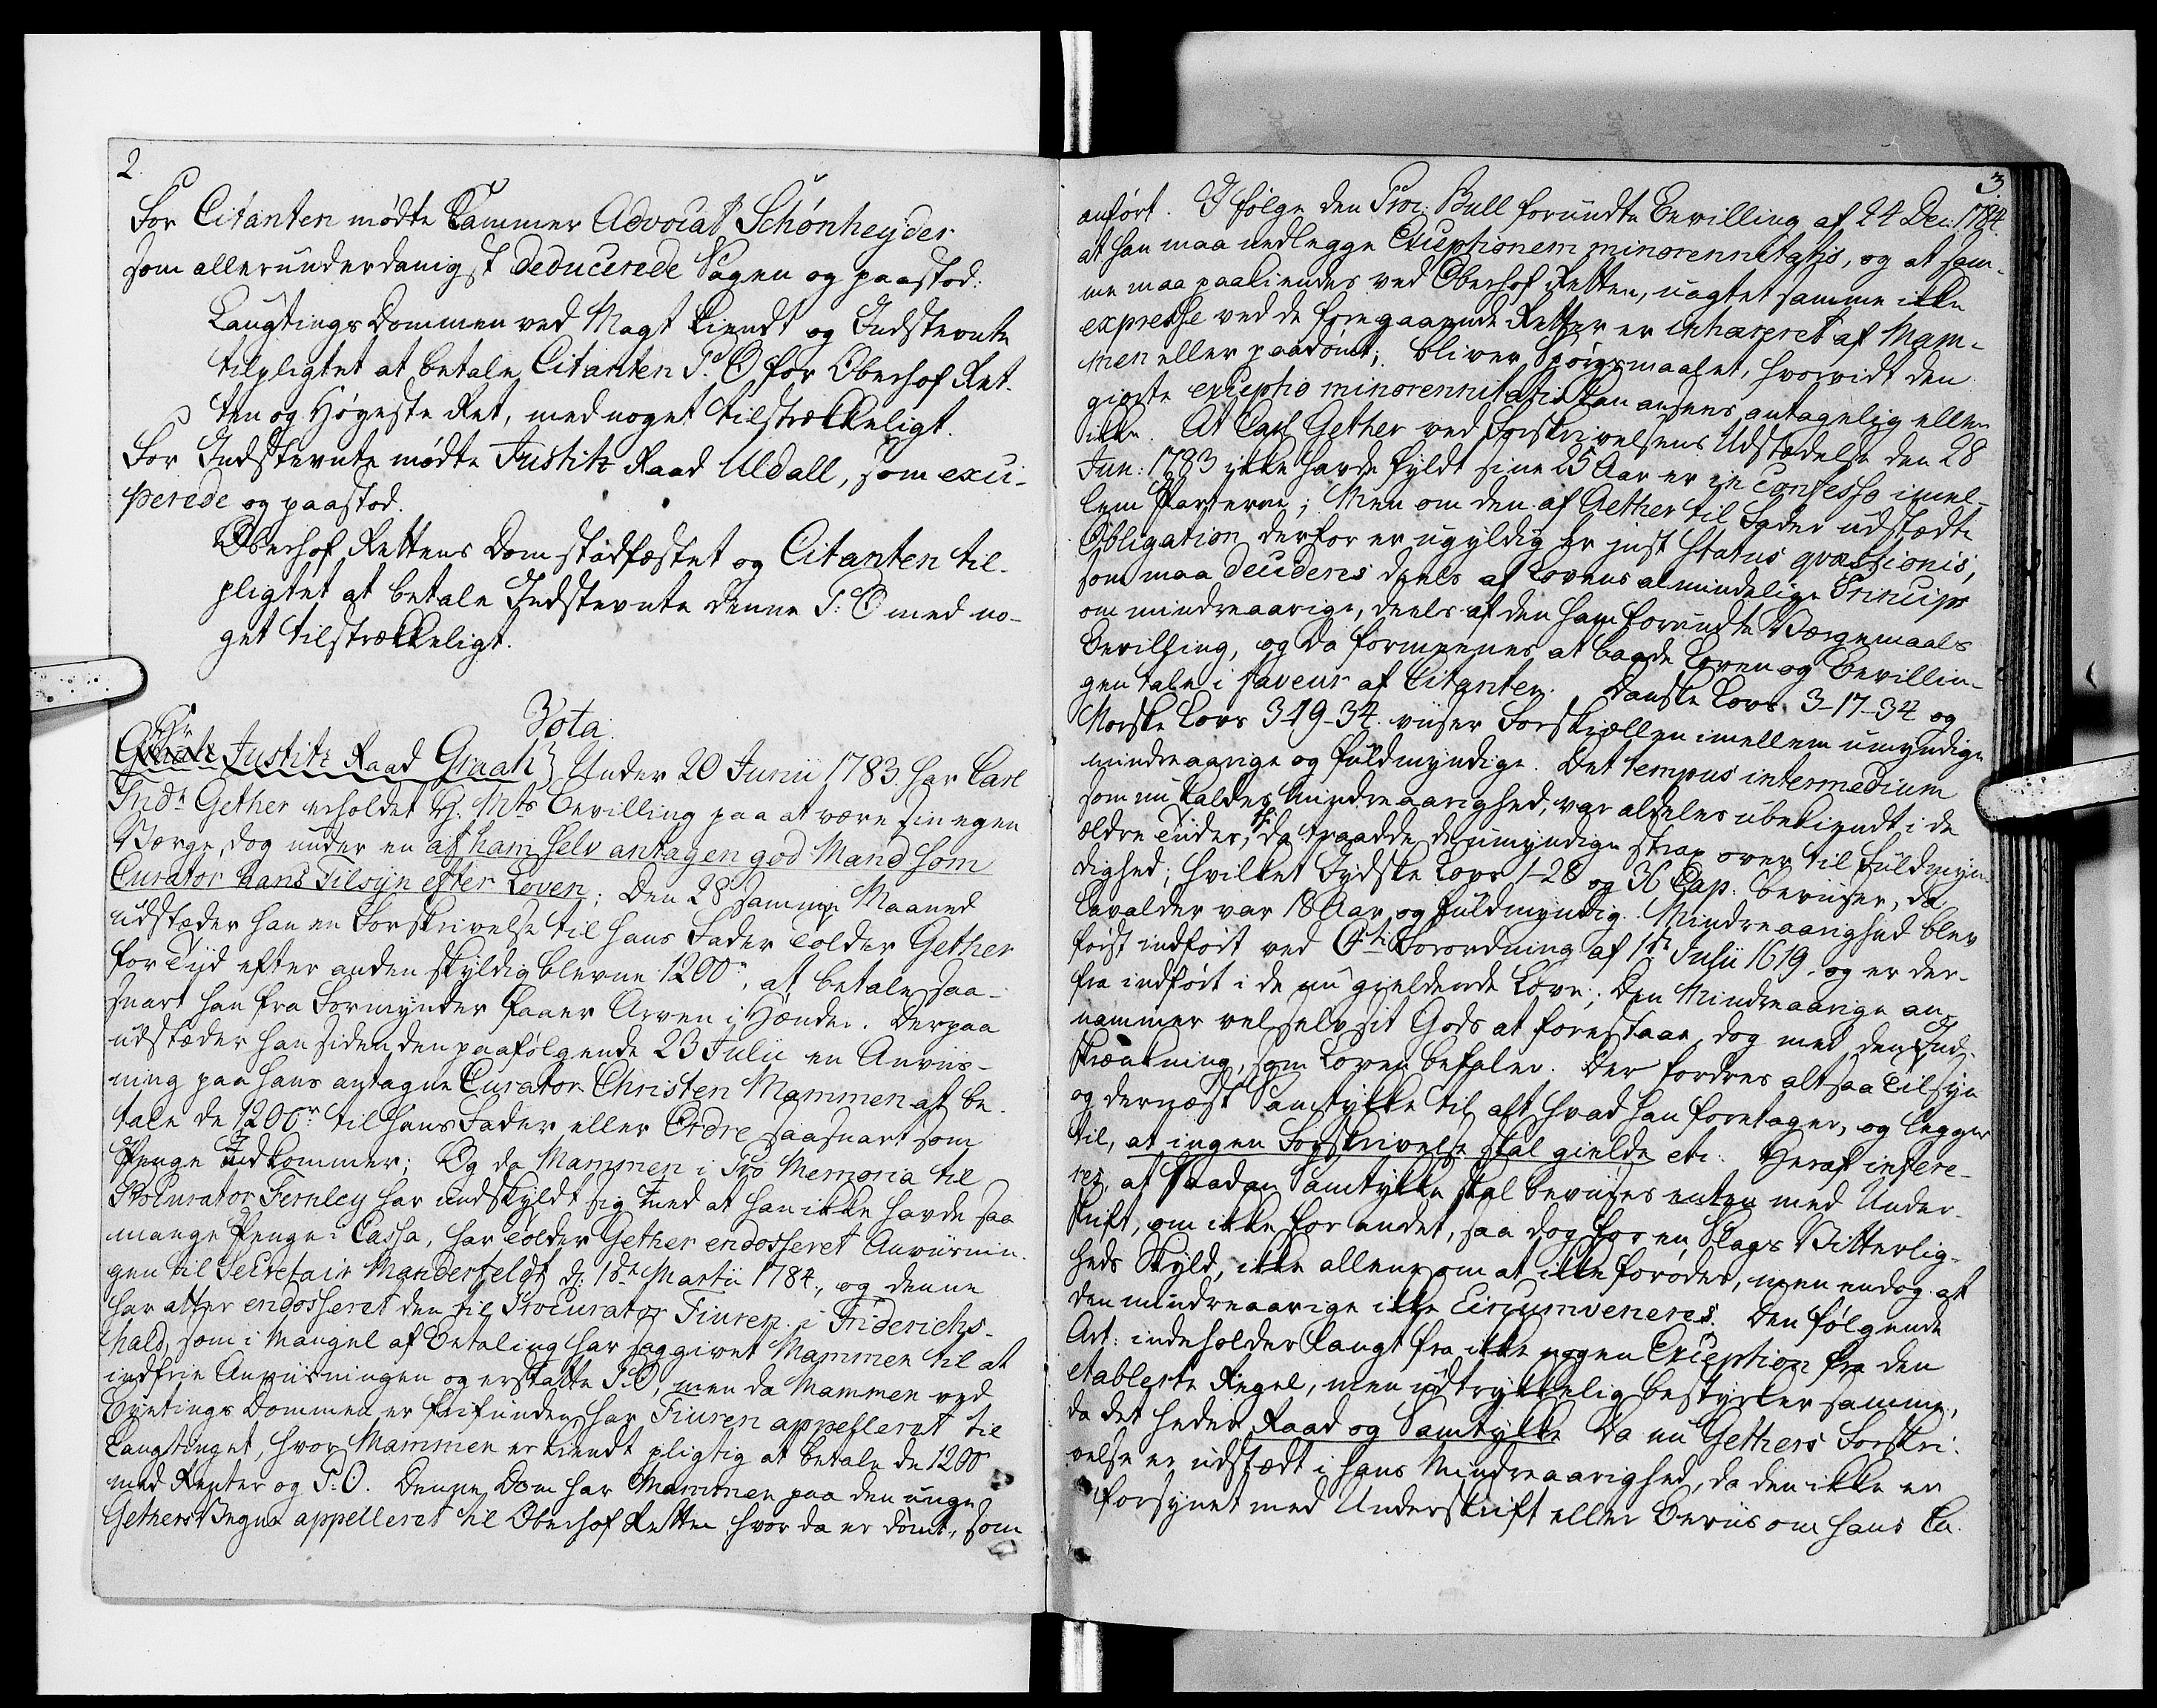 2.
For Citanten mødte Cammer Advocat Schønheyder
som allerunderdanigst deducerede Sagen og paastod:
Laugtings Dommen ved Magt kiendt og Indstevnte
tilpligtet at betale Citanten P: O for Oberhof Ret-
ten og Høyeste Ret, med noget tilstrækkeligt.
For Indstevnte mødte Justitz Raad Uldall, som exci-
perede og paastod.
Oberhof Rettens Dom stadfæstet og Citanten til-
pligtet at betale Indstevnte denne P: O med no-
get tilstrækkeligt.
Vota.
Hr Justitz Raad Graah} Under 20 Junii 1783 har Carl
Frid: Gether erholdet H. Mts Bevilling paa at være sin egen
Værge, dog under en af ham selv antagen god Mand som
Curator hans Tilsyn efter Loven; Den 28 samme Maaned
udstæder han en Forskrivelse til hans Fader Tolder Gether
for Tiid efter anden skyldig blevne 1200 r, at betale saa-
snart han fra Formynder faaer Arven i Hænder. Derpaa
udstæder han siden den paafølgende 23 Julii en Anviis-
ning paa hans antagne Curator Christen Mammen at be-
tale de 1200 r til hans Fader eller Ordre saasnart som
Penge indkommer; Og da Mammen i Pro Memoria til
Procurator Fernley har undskyldt sig med at han ikke havde saa
mange Penge i Cassa, har Tolder Gether endosseret Anviisnin-
gen til Secretair Manderfeldt d: 18de Martii 1784, og denne
har atter endosseret den til Procurator Fiuren i Friderichs-
hald, som i Mangel af Betaling har saggivet Mammen til at
indfrie Anviisningen og erstatte P: O, men da Mammen ved
Byetings Dommen er frifunden, har Fiuren appelleret til
Laugtinget, hvor Mammen er kiendt pligtig at betale de 1200 r
med Renter og P: O. Denne Dom har Mammen paa den unge
Gethers Vegne appelleret til Oberhof Retten hvor da er dømt, som
3.
anført. I følge den Proc: Bull forundte Bevilling af 24 Dec: 1784.
at han maa nedlegge Exceptionem minorennitatis, og at sam-
me maa paakiendes ved Oberhof Retten, uagtet samme ikke
expresse ved de foregaaende Retter er inhæreret af Mam-
men eller paadømt; bliver Spørgsmaalet, hvorvidt den
giorte exceptio minorennitatis kan ansees antagelig eller
ikke. At Carl Gether ved Forskrivelsens Udstædelse den 28
Jun: 1783 ikke havde fyldt sine 25 Aar er in confesso imel-
lem Parterne; Men om den af Gether til Fader udstædte
Obligation derfor er ugyldig er just status qvæstionis,
som maa decideris deels af Lovens almindelige Princip
om mindreaarige, deels af den ham forundte Værgemaals
Bevilling, og da formeenes at baade Loven og Bevillin-
gen tale i faveur af Citanten. Danske Lovs 3-17-34 og
Norske Lovs 3-19-34 viser Forskiællen imellem umyndige
mindreaarige og fuldmyndige. Det tempus intermedium
som nu kaldes Mindreaarighed, var aldeles ubekiendt i de
ældre Tiider, thi da traadde de umyndige strax over til Fuldmyn-
dighed; hvilket Jydske Lovs 1-28 og 36 Cap. beviser, da
Lavalder var 18 Aar og fuldmyndig. Mindreaarighed blev
først indført ved C 4ti Forordning af 1te Julii 1619, og er der-
fra indført i de nu gieldende Love; Den Mindreaarige an-
nammer vel selv sit Gods at forestaae, dog med den Ind-
skrænkning, som Loven befaler. Der fordres altsaa Tilsyn
og dernæst Samtykke til alt hvad han foretager, og legger
til, at ingen Forskrivelse skal gielde etc: Heraf infere-
res, at saadan Samtykke skal bevises enten med Under-
skrift, om ikke for andet, saa dog for en Slags Vitterlig-
heds Skyld, ikke allene om at ikke forødes, men endog at
den mindreaarige ikke Circumveneres. Den følgende
Art: indeholder langt fra ikke nogen Exception fra den
etablerte Regel, men udtrykkelig bestyrker samme,
da det heder Raad og Samtykke Da nu Gethers Forskri-
velse er udstædt i hans Mindreaarighed, da den ikke er
forsynet med Underskrift eller Beviis om hans Cu-